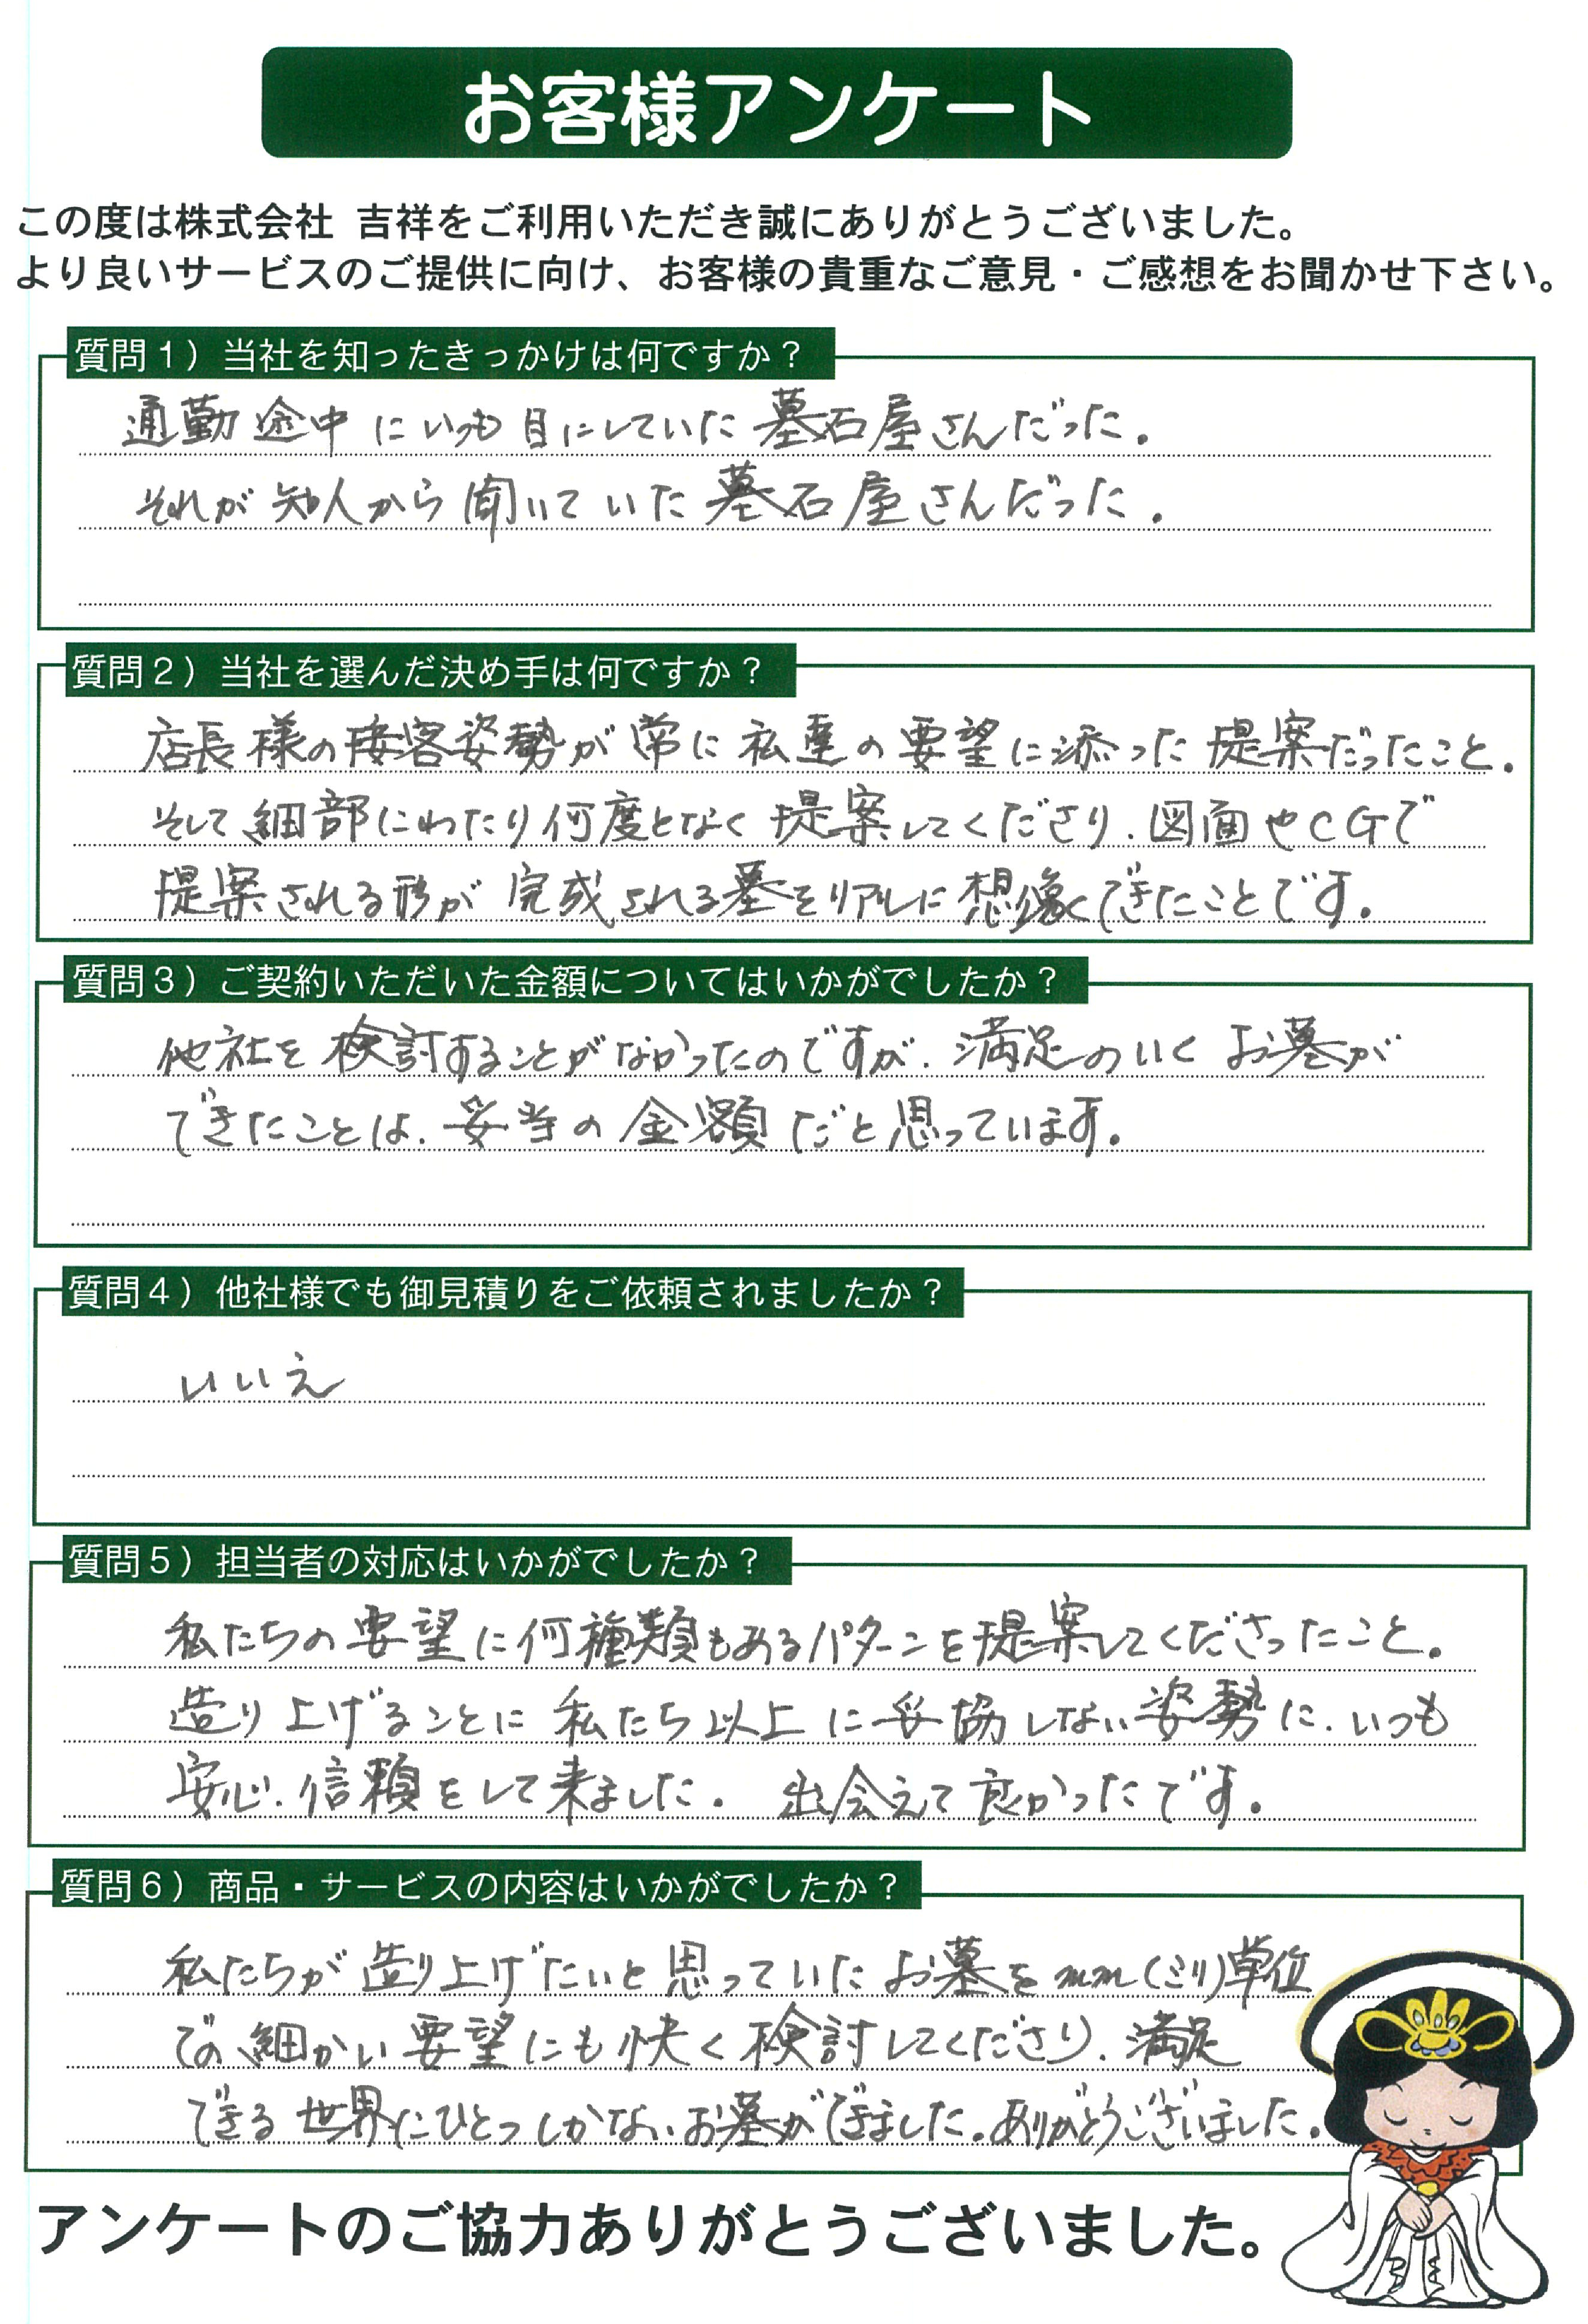 お客様アンケート
この度は株式会社 吉祥をご利用いただき誠にありがとうございました。
より良いサービスのご提供に向け、お客様の貴重なご意見・ご感想をお聞かせ下さい。
質問1）当社を知ったきっかけは何ですか？
通勤途中にいつも目にしていた墓石屋さんだった。
それが知人から聞いていた墓石屋さんだった。
質問2）当社を選んだ決め手は何ですか？
店長様の接客姿勢が常に私達の要望に添った提案だったこと。
そして細部にわたり何度となく提案してくださり、図面やCGで
提案される形が完成される墓をリアルに想像できたことです。
質問3）ご契約いただいた金額についてはいかがでしたか？
他社を検討することがなかったのですが、満足のいくお墓が
できたことは、妥当の金額だと思っています。
質問4）他社様でも御見積りをご依頼されましたか？
いいえ
質問5）担当者の対応はいかがでしたか？
私たちの要望に何種類もあるパターンを提案してくださったこと。
造り上げることに私たち以上に妥協しない姿勢に、いつも
安心、信頼をして来ました。 出会えて良かったです。
質問6）商品・サービスの内容はいかがでしたか？
私たちが造り上げたいと思っていたお墓をmm(ミリ)単位
での細かい要望にも快く検討してくださり、満足
できる世界にひとつしかないお墓ができました。ありがとうございました。
アンケートのご協力ありがとうございました。